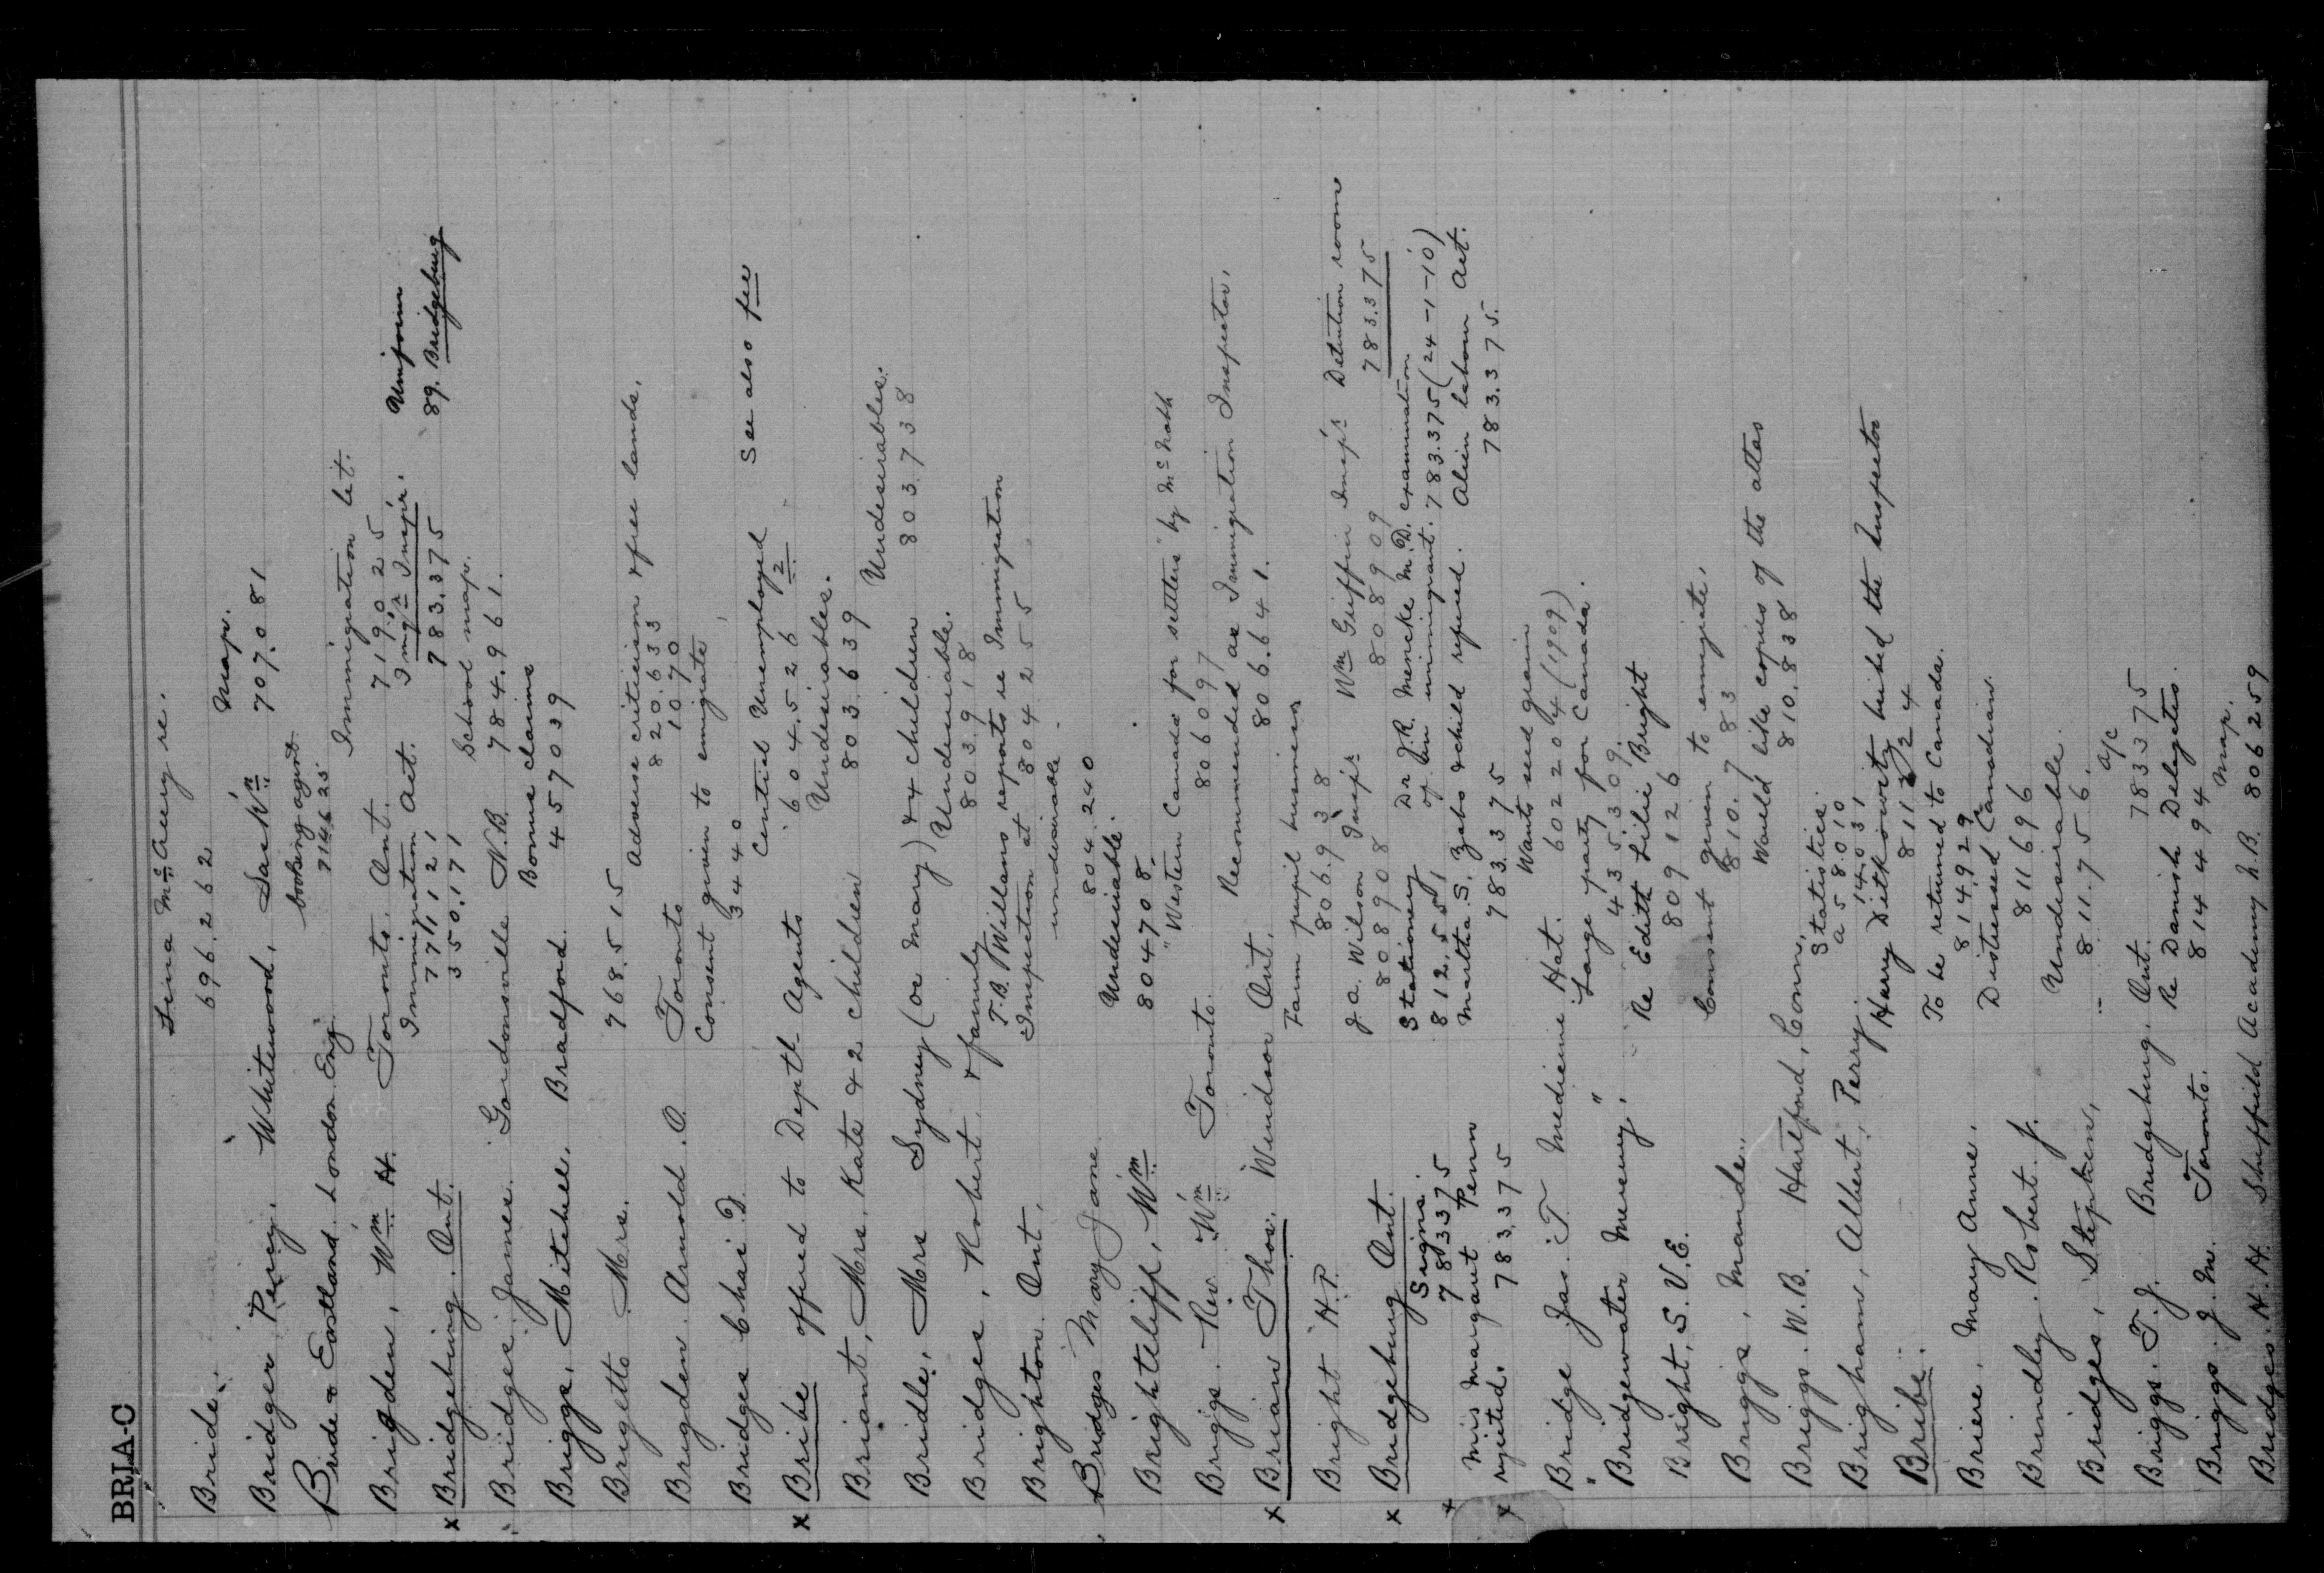 BRIA-C
Bride. Lina McAvey re.
696.262
Bridger Percy. Whitewood, Sask'n. Map.
707.081
Birds & Eastland. London Eng. booking agent
714625
Brigden, Wm H. Toronto. Ont. Immigration Lit.
719.025
x Bridgeburg. Ont. Immigration Act. Img'n Insp'r. Uniform
771121 783.375 89. Bridgeburg
350.171
Bridges. James. Gordonsville N.B. School map.
784.961.
Briggs, Mitchell. Bradford. Bonus claims
457039
Brigetto Mrs. 768.515
Brigden. Arnold. O. Toronto Adverse criticism & free lands.
820.633
1070
Bridges Chas. D. Consent given to emigrate
3440
x Bribe offered to Deptl Agents Central Unemployed See also fee
604.526 2
Briant, Mrs. Kate & 2 children Undesirables.
803.639
Bridle, Mrs Sydney (or Mary) & 4 children Undesirables.
803.738
Bridges, Robert. & family Undesirable.
803918
Brighton. Ont. T.B. Willans reports re Immigration
Inspection at 804255
Bridges Mary Jane undesirable.
804.240
Brightcliff, Wm Undesirable.
804708.
Briggs. Rev. Wm Toronto. "Western Canada for settlers" by McNabb
806097
x Brian Thos. Windsor Ont. Recommended as Immigration Inspector.
806.641.
Bright H.P. Farm pupil business
806.938
x Bridgeburg Ont. J.A. Wilson Insp'r Wm Griffin Insp'r Detention room
808908 808909 783.375
Signs. Stationery Dr J.R. Mencke M.D. examination
783375 812.551 of an immigrant. 783.375 (24-1-10)
x Miss Margaret Penn Martha S. Zebs & child refused. Alien Labour Act.
x rejected. 783375 783.375 783.375.
Bridge Jas. T Medicine Hat. Wants seed grain
602204 (1909)
"Bridgewater Mercury." Large party for Canada.
435.309.
Bright, S.V.E. Re Edith Lilie Bright
809126
Briggs, Maude. Consent given to emigrate,
810.783
Briggs. W.B. Hartford, Conn. Would like copies of the atlas
810.838
Brigham, Albert, Perry. Statistics.
a58.010
14.031
Bribe. Harry Ditkowsity bribed the Inspector
Briere. Mary Anne. To be returned to Canada.
814.929
Brindley. Robert. J. Distressed Canadian.
811696
Bridges, Stephen, Undesirable.
811.756.
Briggs. T.J. Bridgeburg. Ont. a/c
783375
Briggs. J.M. Toronto. Re Danish Delegates.
814494
Bridges. H.H. Sheffield Academy N.B. Map.
806259